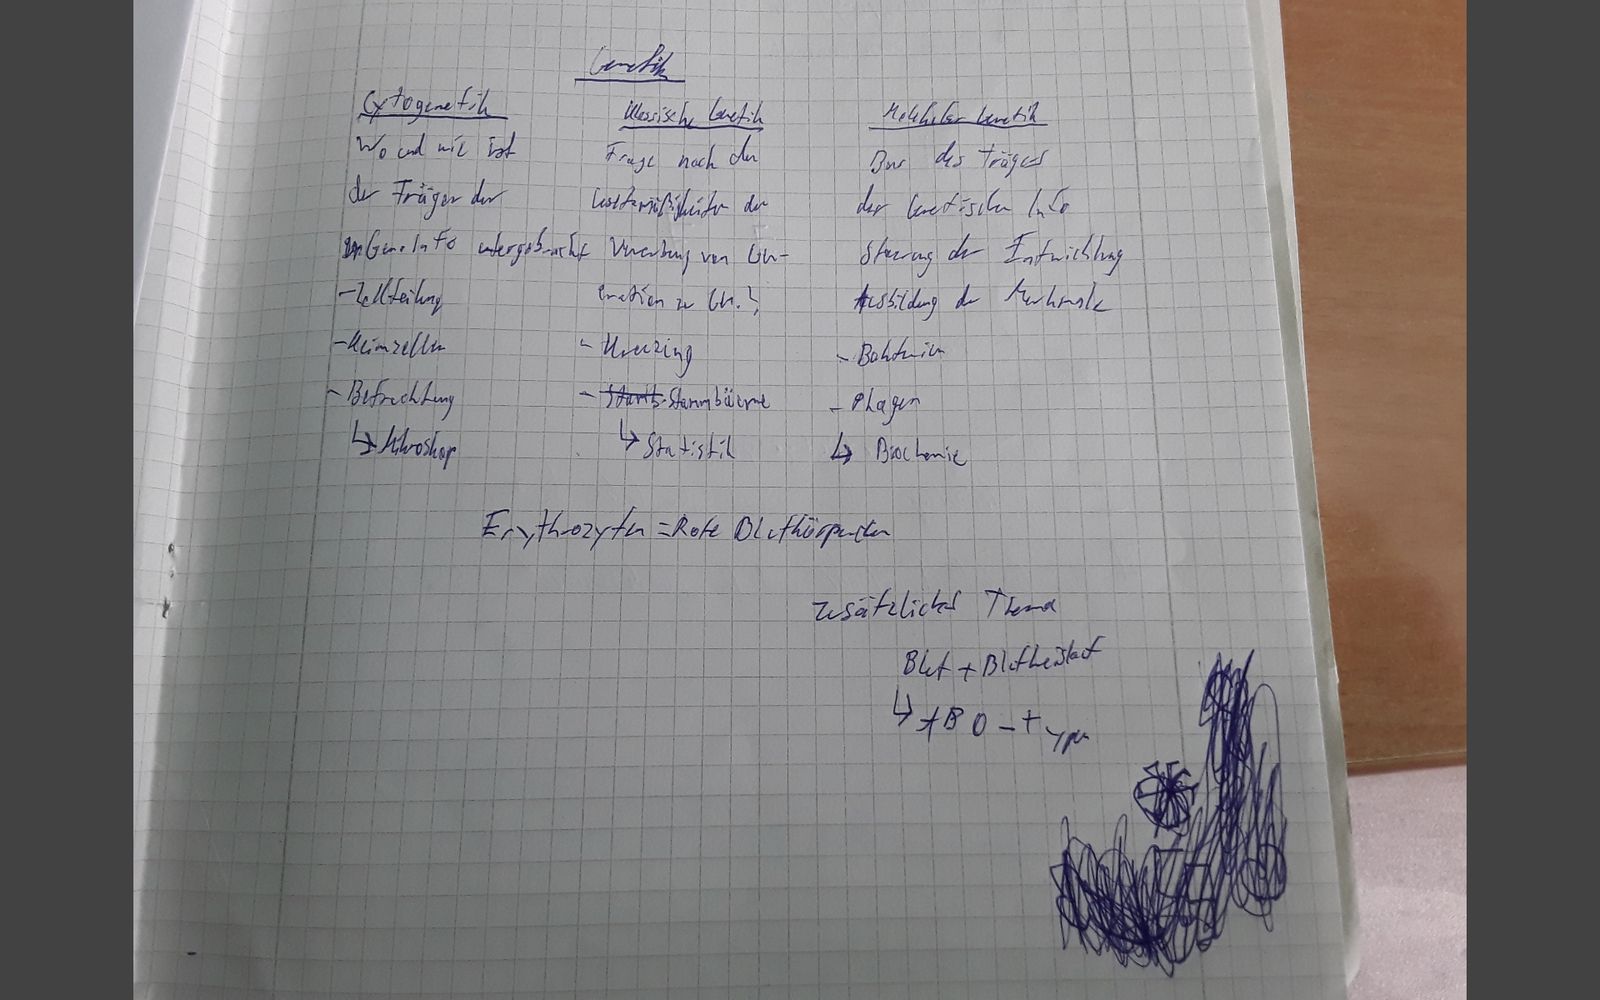 Genetik
Cytogenetik
Wo und wie ist
der Träger der
Gen. Info untergebracht
- Zellteilung
- Keimzellen
- Befruchtung
↳ Mikroskop
Klassische Genetik
Frage nach den
Gesetzmäßigkeiten der
Vererbung von Gen-
eration zu Gen.?
- Kreuzing
- Stammbäume
↳ Statistik
Molekular Genetik
Bau des Trägers
der Genetischen Info
Steurung der Entwicklung
Ausbildung der Merkmale
- Bakterien
- Phagen
↳ Biochemie
Erythrozyten = Rote Blutkörperchen
Zusätzliches Thema
Blut + Blutkreislauf
↳ AB0 - Typen